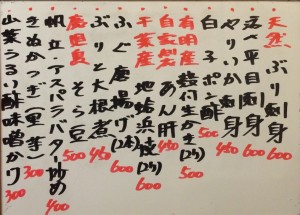 天然 ぶり刺身 600
活〆平目刺身 600
やりいか刺身
白子ポン酢 500
有明産 殻付生がき(2ケ) 500
自家製 あん肝 450
千葉産 地蛤浜焼(2ケ) 600
ふぐ唐揚げ(2本) 600
ぶりと大根煮 450
鹿児島 そら豆 500
帆立・アスパラバター炒め 400
きぬかつぎ(里芋) 300
山菜うるい酢味噌かけ 300